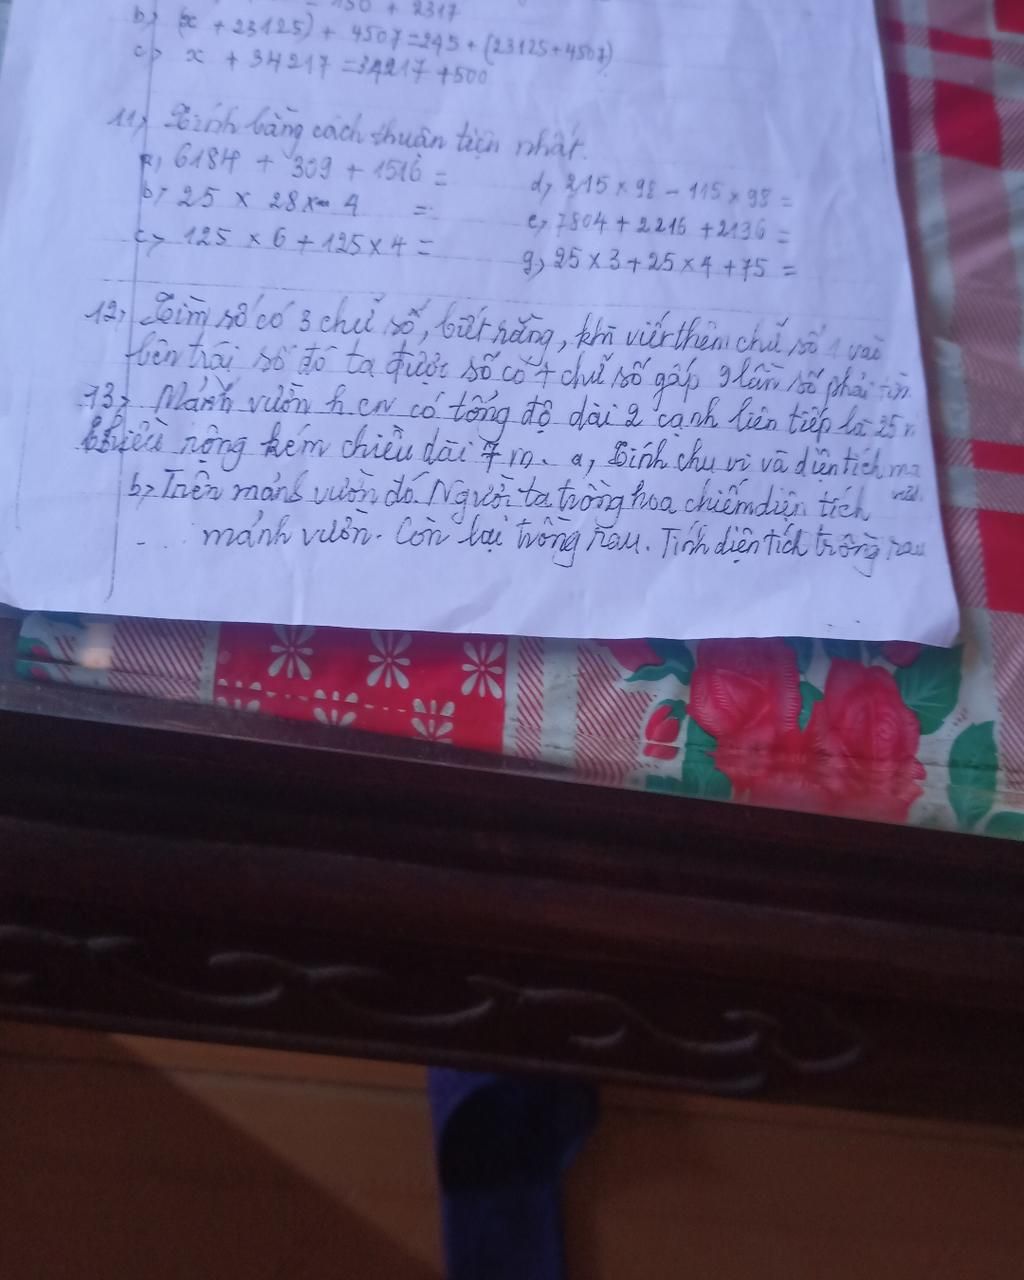 150 + 2317
b, (x + 23125) + 4507 = 245 + (23125 + 4507)
c, x + 34217 = 34217 + 500
11, Tính bằng cách thuận tiện nhất.
a, 6184 + 309 + 1516 =
d, 215 x 98 - 115 x 98 =
b, 25 x 28 x 4 =
e, 7804 + 2216 + 2136 =
c, 125 x 6 + 125 x 4 =
g, 25 x 3 + 25 x 4 + 75 =
12, Tìm số có 3 chữ số, biết rằng, khi viết thêm chữ số 1 vào
bên trái số đó ta được số có 4 chữ số gấp 9 lần số phải tìm
13, Mảnh vườn hcn có tổng độ dài 2 cạnh liên tiếp là 25 m
Chiều rộng kém chiều dài 7 m. a, Tính chu vi và diện tích
b, Trên mảnh vườn đó. Người ta trồng hoa chiếm diện tích
mảnh vườn. Còn lại trồng rau. Tính diện tích trồng rau